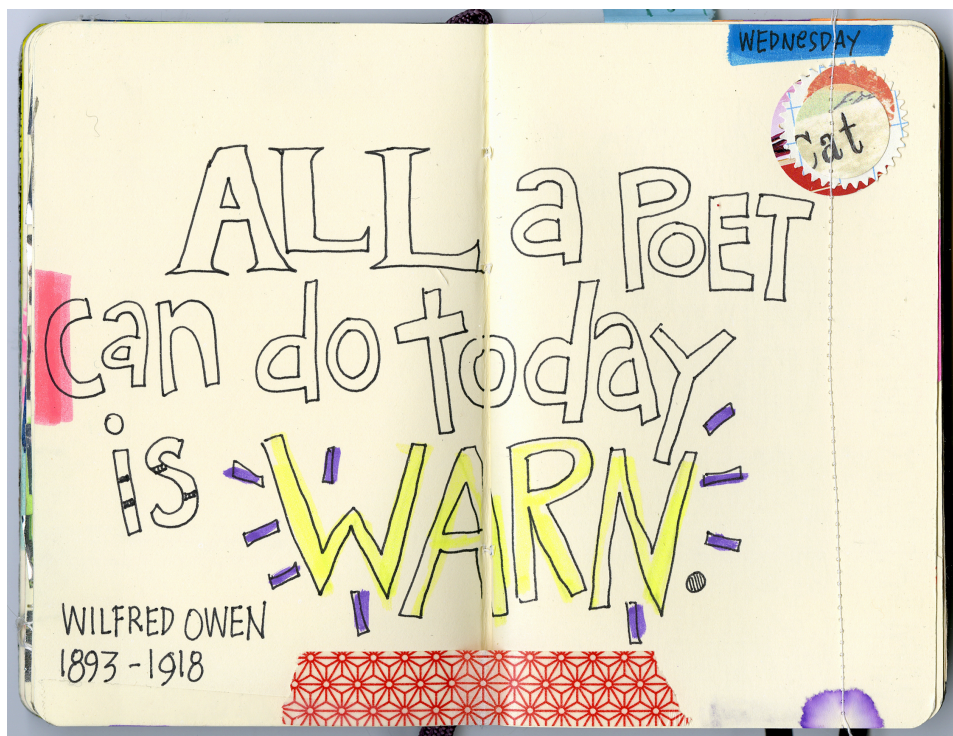 WEDNESDAY
Cat
ALL a POET
can do today
is WARN.
WILFRED OWEN
1893-1918